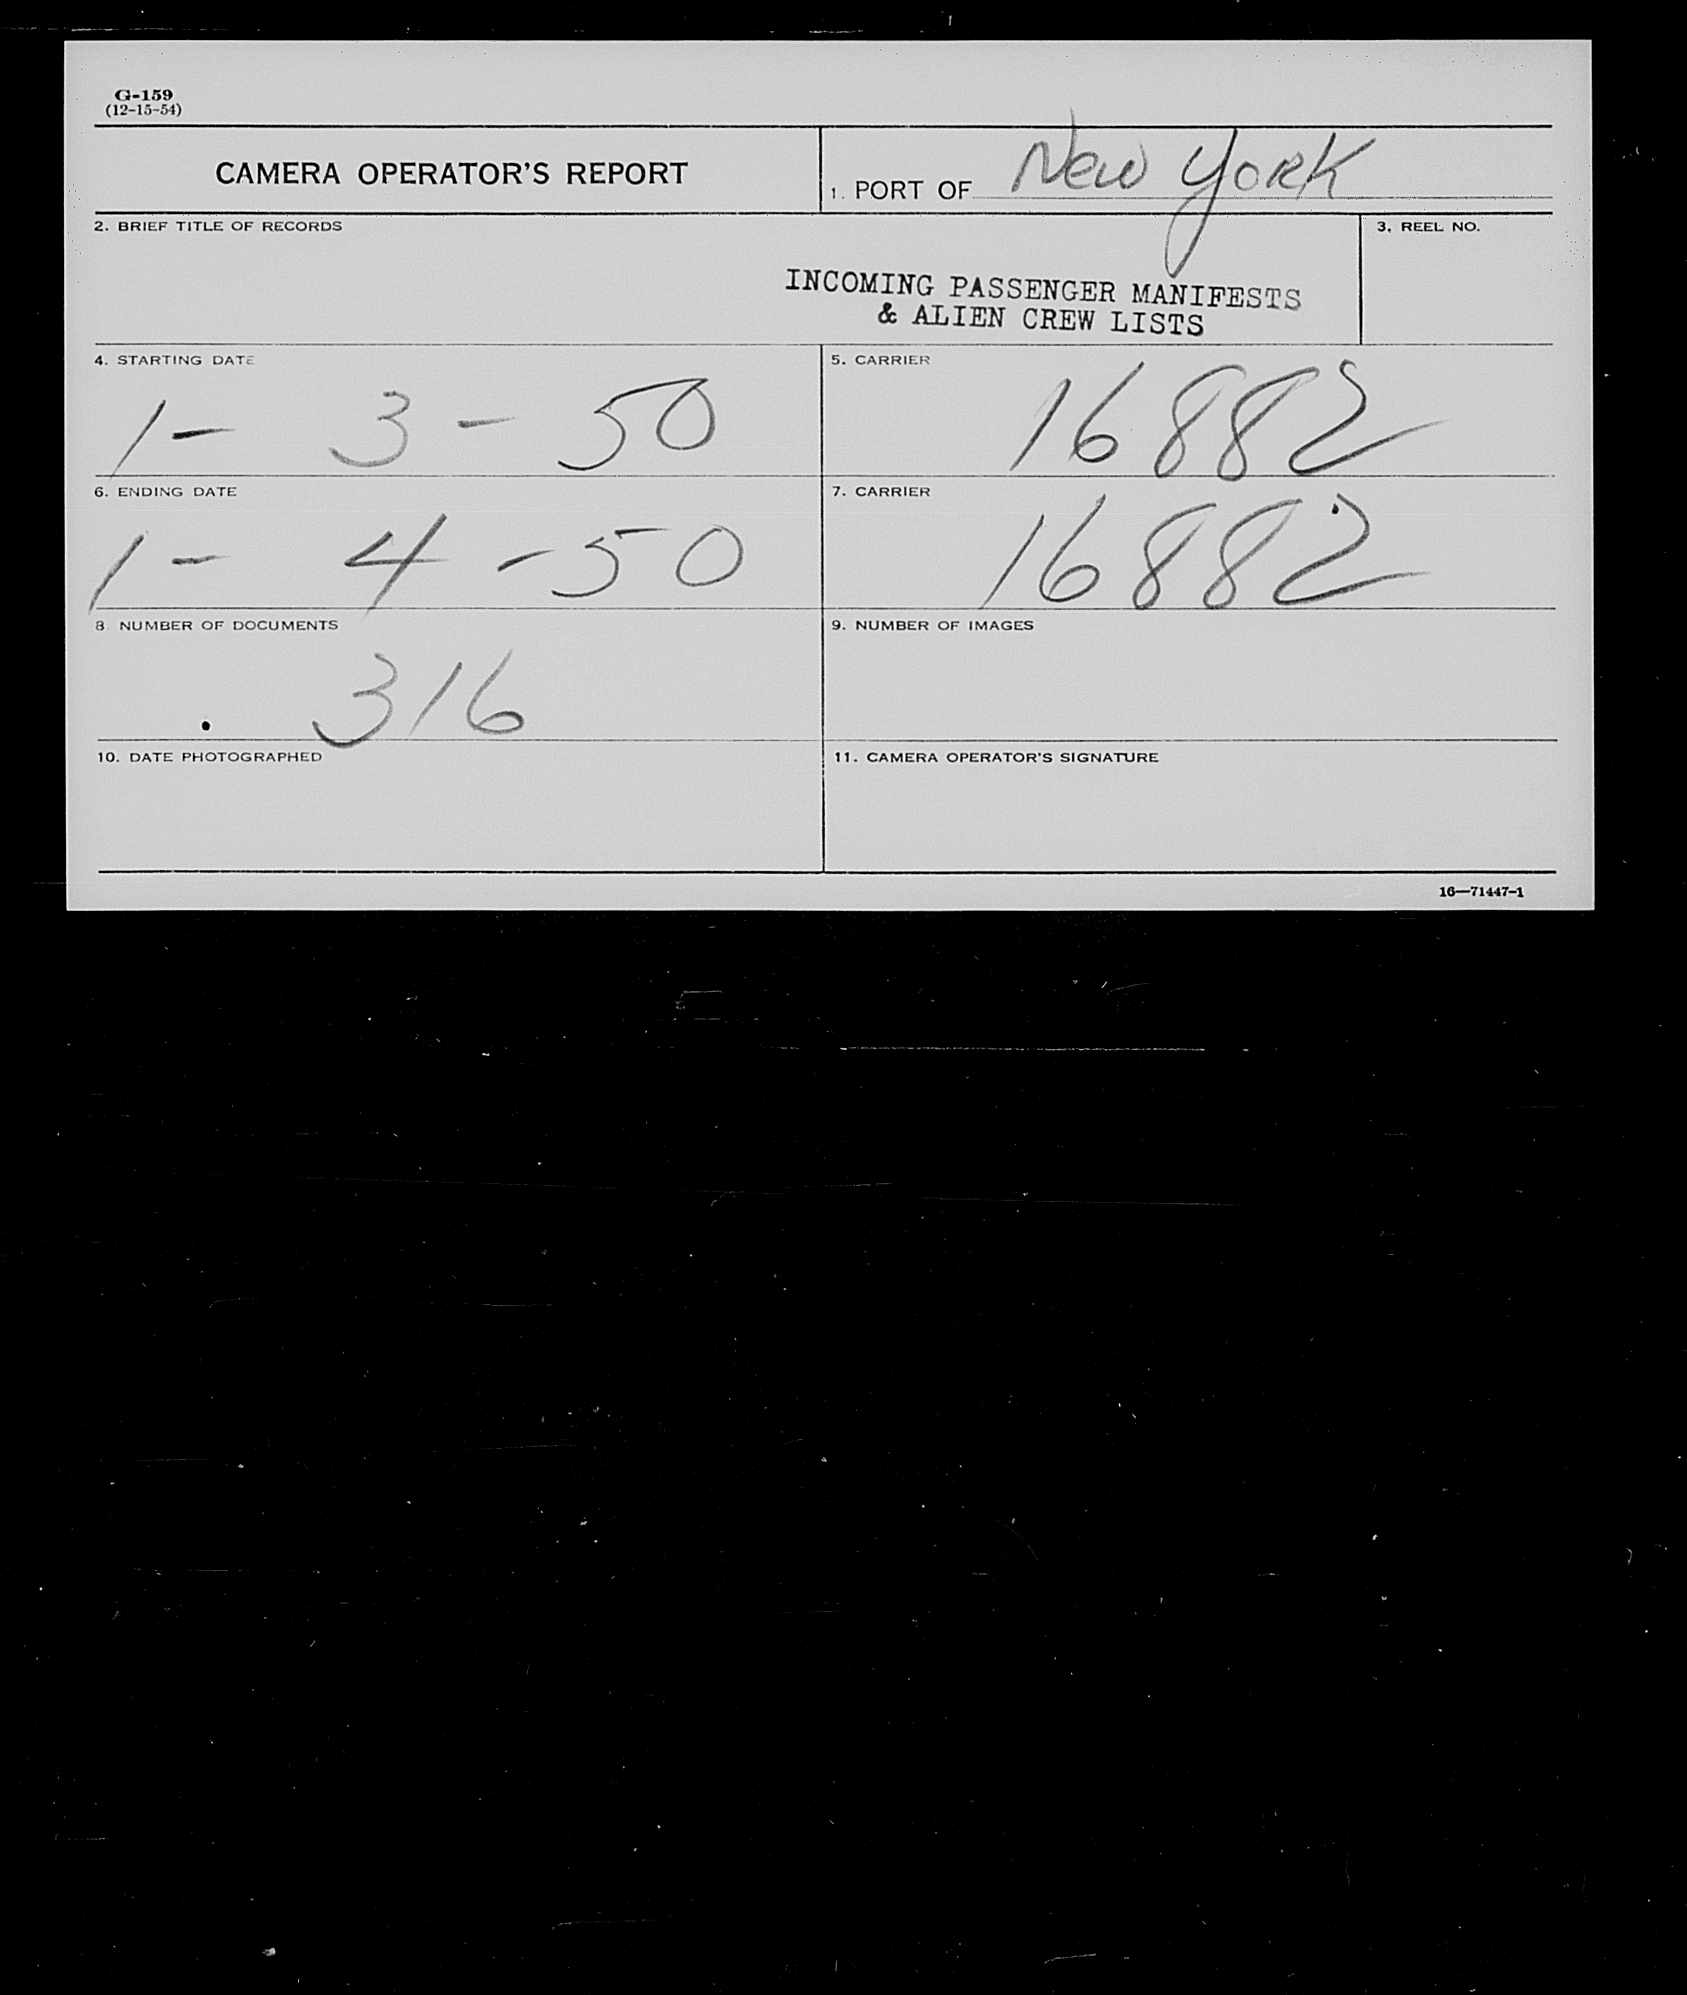 G-159
(12-15-54)
CAMERA OPERATOR'S REPORT
1. PORT OF New York
2. BRIEF TITLE OF RECORDS
3. REEL NO.
INCOMING PASSENGER MANIFESTS
& ALIEN CREW LISTS
4. STARTING DATE
1- 3 - 50
5. CARRIER
16882
6. ENDING DATE
1- 4 - 50
7. CARRIER
16882
8. NUMBER OF DOCUMENTS
316
9. NUMBER OF IMAGES
10. DATE PHOTOGRAPHED
11. CAMERA OPERATOR'S SIGNATURE
16—71447-1